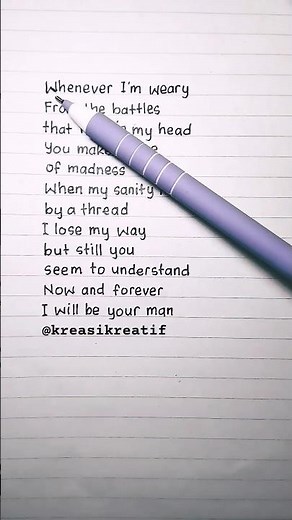 Whenever I'm weary
the battles
that my head
You
of madness
When my sanity
by a thread
I lose my way
but still you
seem to understand
Now and forever
I will be your man
@kreasikreatif